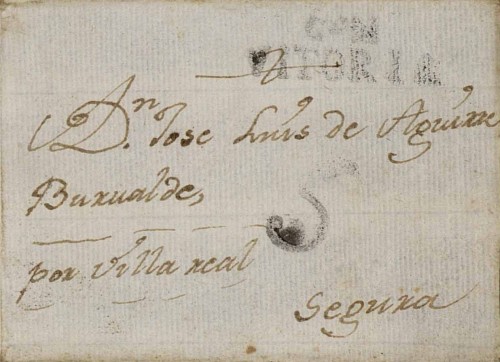 VITORIA
A Dn. Jose Luis de Aguirre
Burualde,
5
por Villa real
Segura